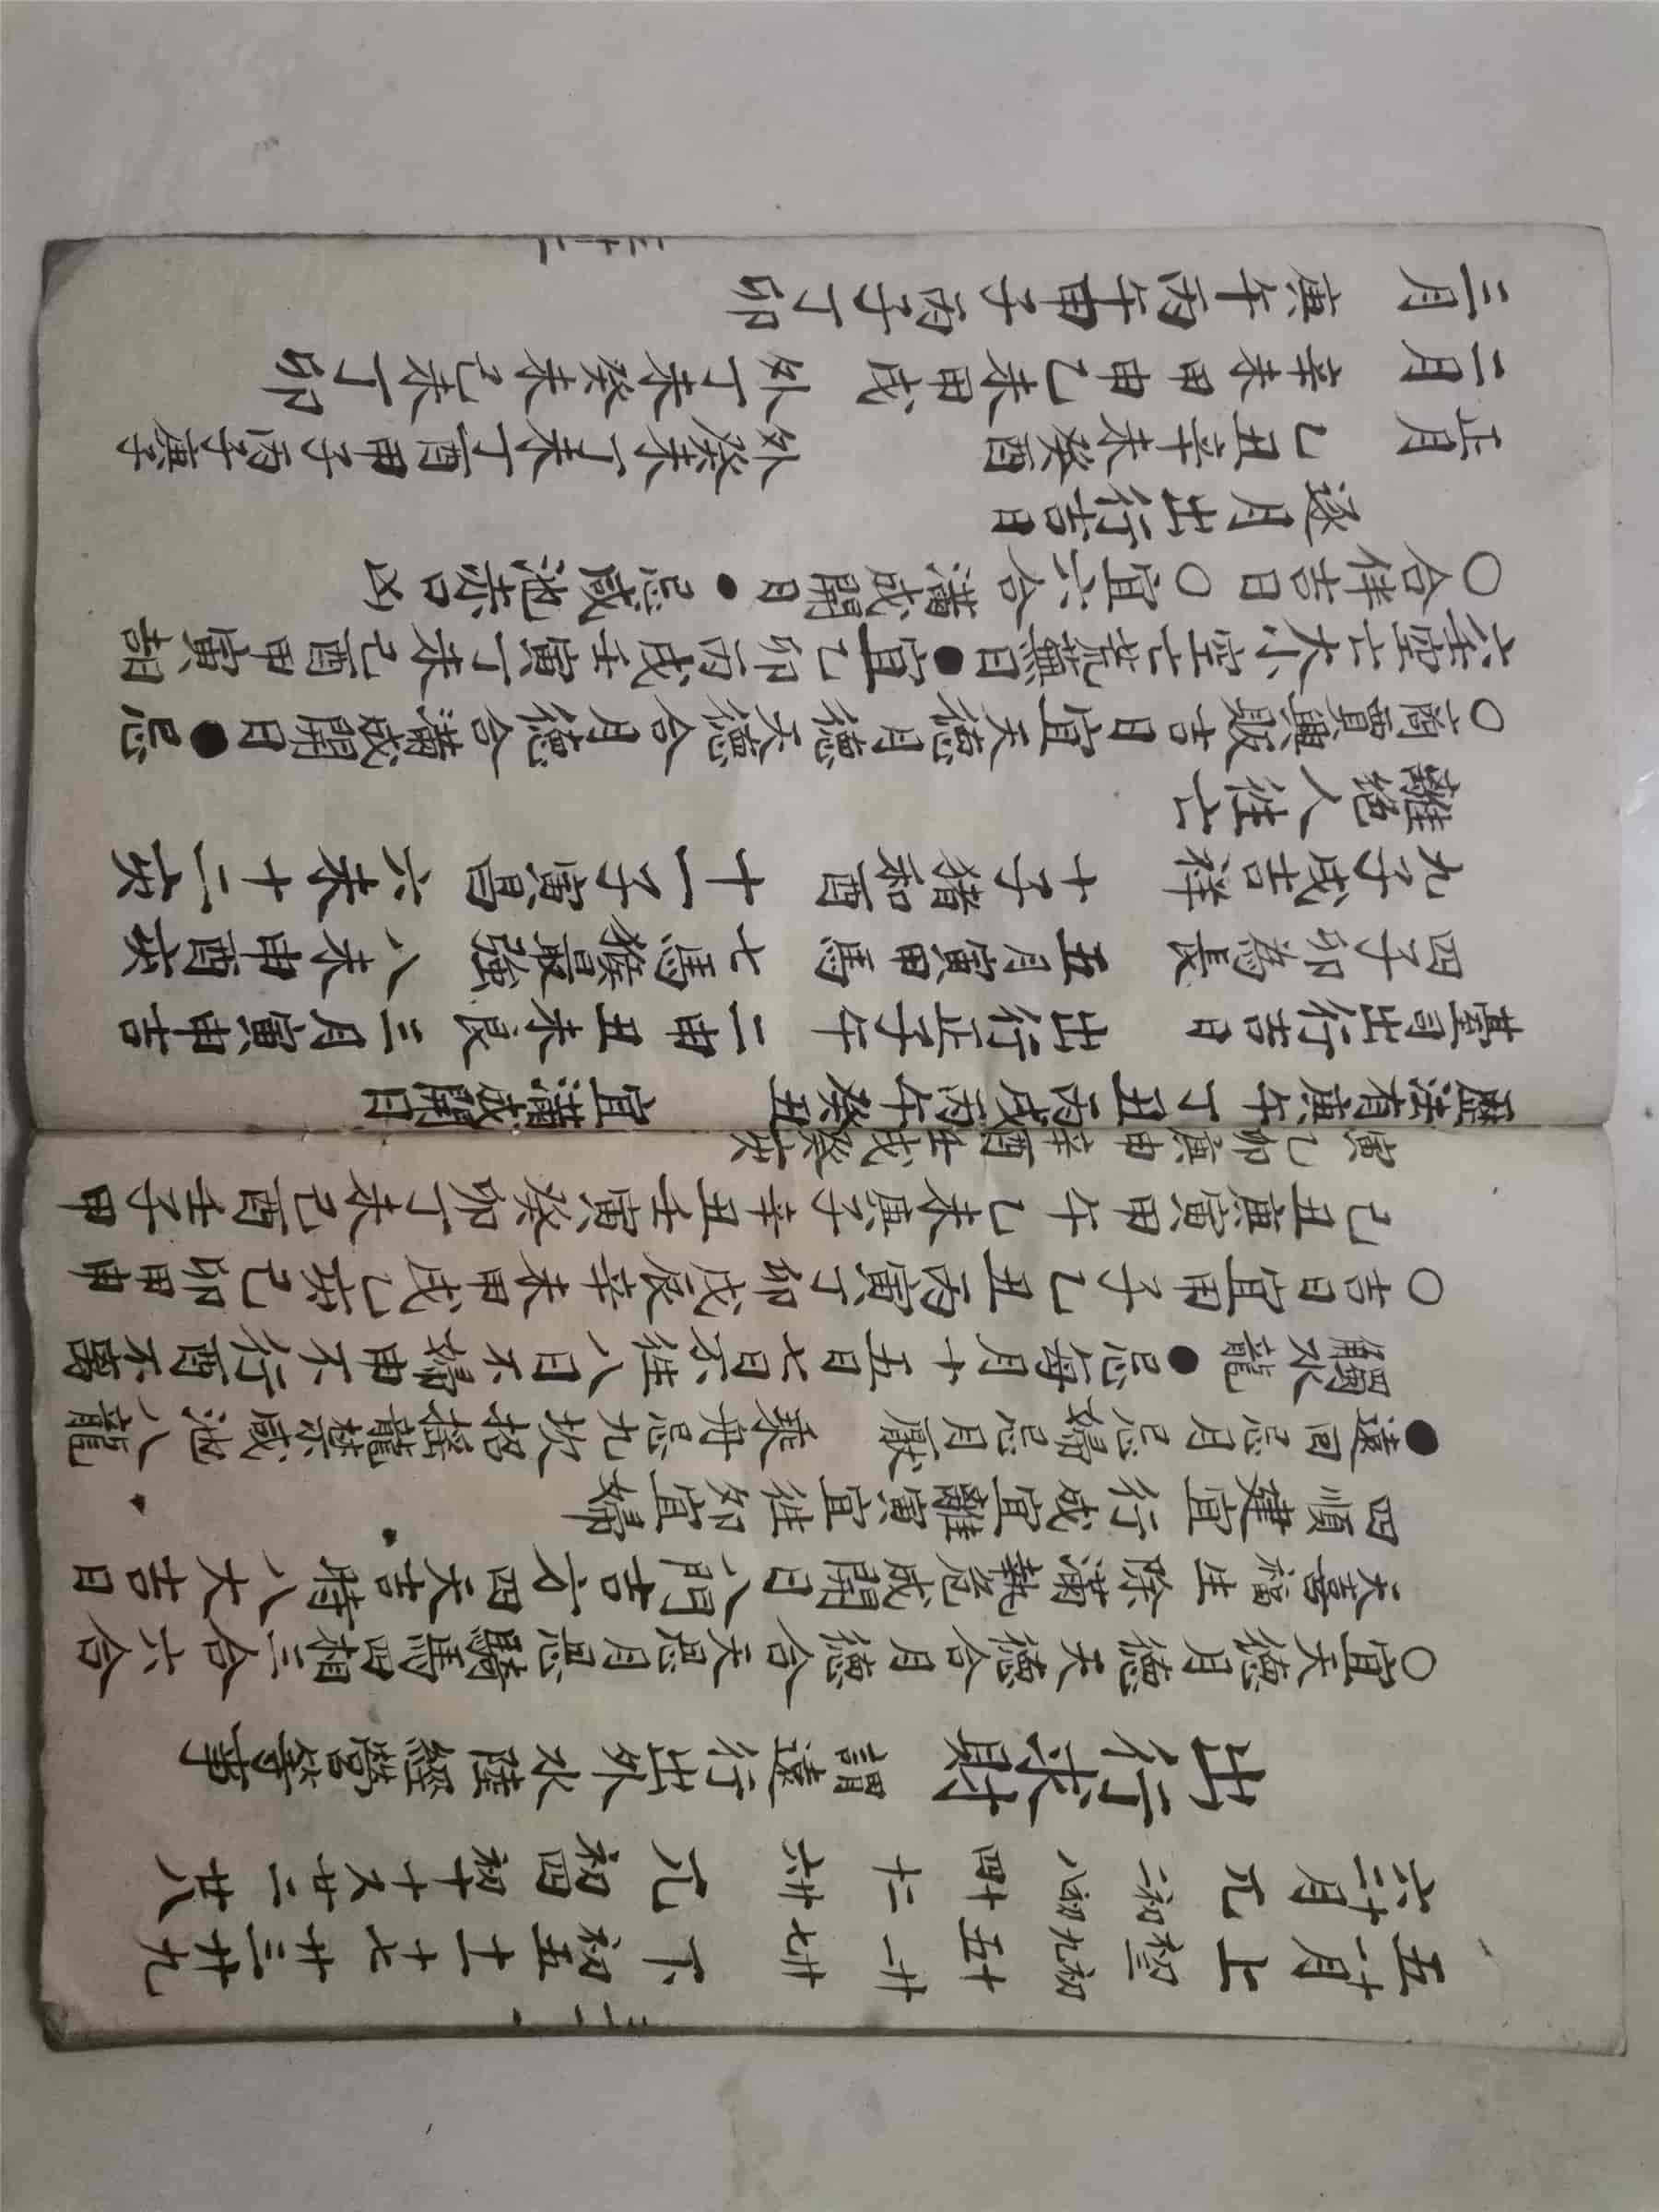 五十一月 上 初三 初九 十五 廿一 廿七 下 初五 十一 十七 廿三 廿九
六十二月 兀 初二 初八 十四 二十 廿六 兀 初四 初十 十六 廿二 廿八
出行求財 謂遠行出外水陸經營等事
○宜天德月德天德合月德合天恩月恩驛馬四相三合六合
天喜福生除滿執危成開日八門吉方四天吉時八大吉日
四順建宜行成宜離寅宜徃卯宜歸
●遠回忌月忌歸忌月厭 乘舟忌九坎招搖龍禁咸池八龍
觸水龍●忌每月十五日七日不徃八日不歸申不行酉不離
○吉日宜甲子乙丑丙寅丁卯戊辰辛未甲戌乙亥己卯甲申
己丑庚寅甲午乙未庚子辛丑壬寅癸卯丁未己酉壬子甲
寅乙卯庚申辛酉壬戌癸亥
歷法有庚午丁丑丙戌丙午癸丑 宜滿成開日
臺司出行吉日 出行正子午 二申丑未良 三月寅申吉
四子卯為長 五月寅甲馬 七馬猴最強 八未申酉亥
九子戌吉祥 十子猪和酉 十一子寅昌 六未十二亥
離絕人徃亡
○商賈興販吉日宜天德月德天德合月德合滿成開日●忌
六壬空亡大小空亡荒蕪日●宜己卯丙戌壬寅丁未己酉甲寅胡
○合伴吉日○宜六合滿成開日●忌咸池赤口凶
逐月出行吉日
正月 乙丑辛未癸酉 外癸未丁未丁酉甲子丙子庚子
二月 辛未甲申乙未甲戌 外丁未癸未己未丁卯
三月 庚午丙午甲子丙子丁卯